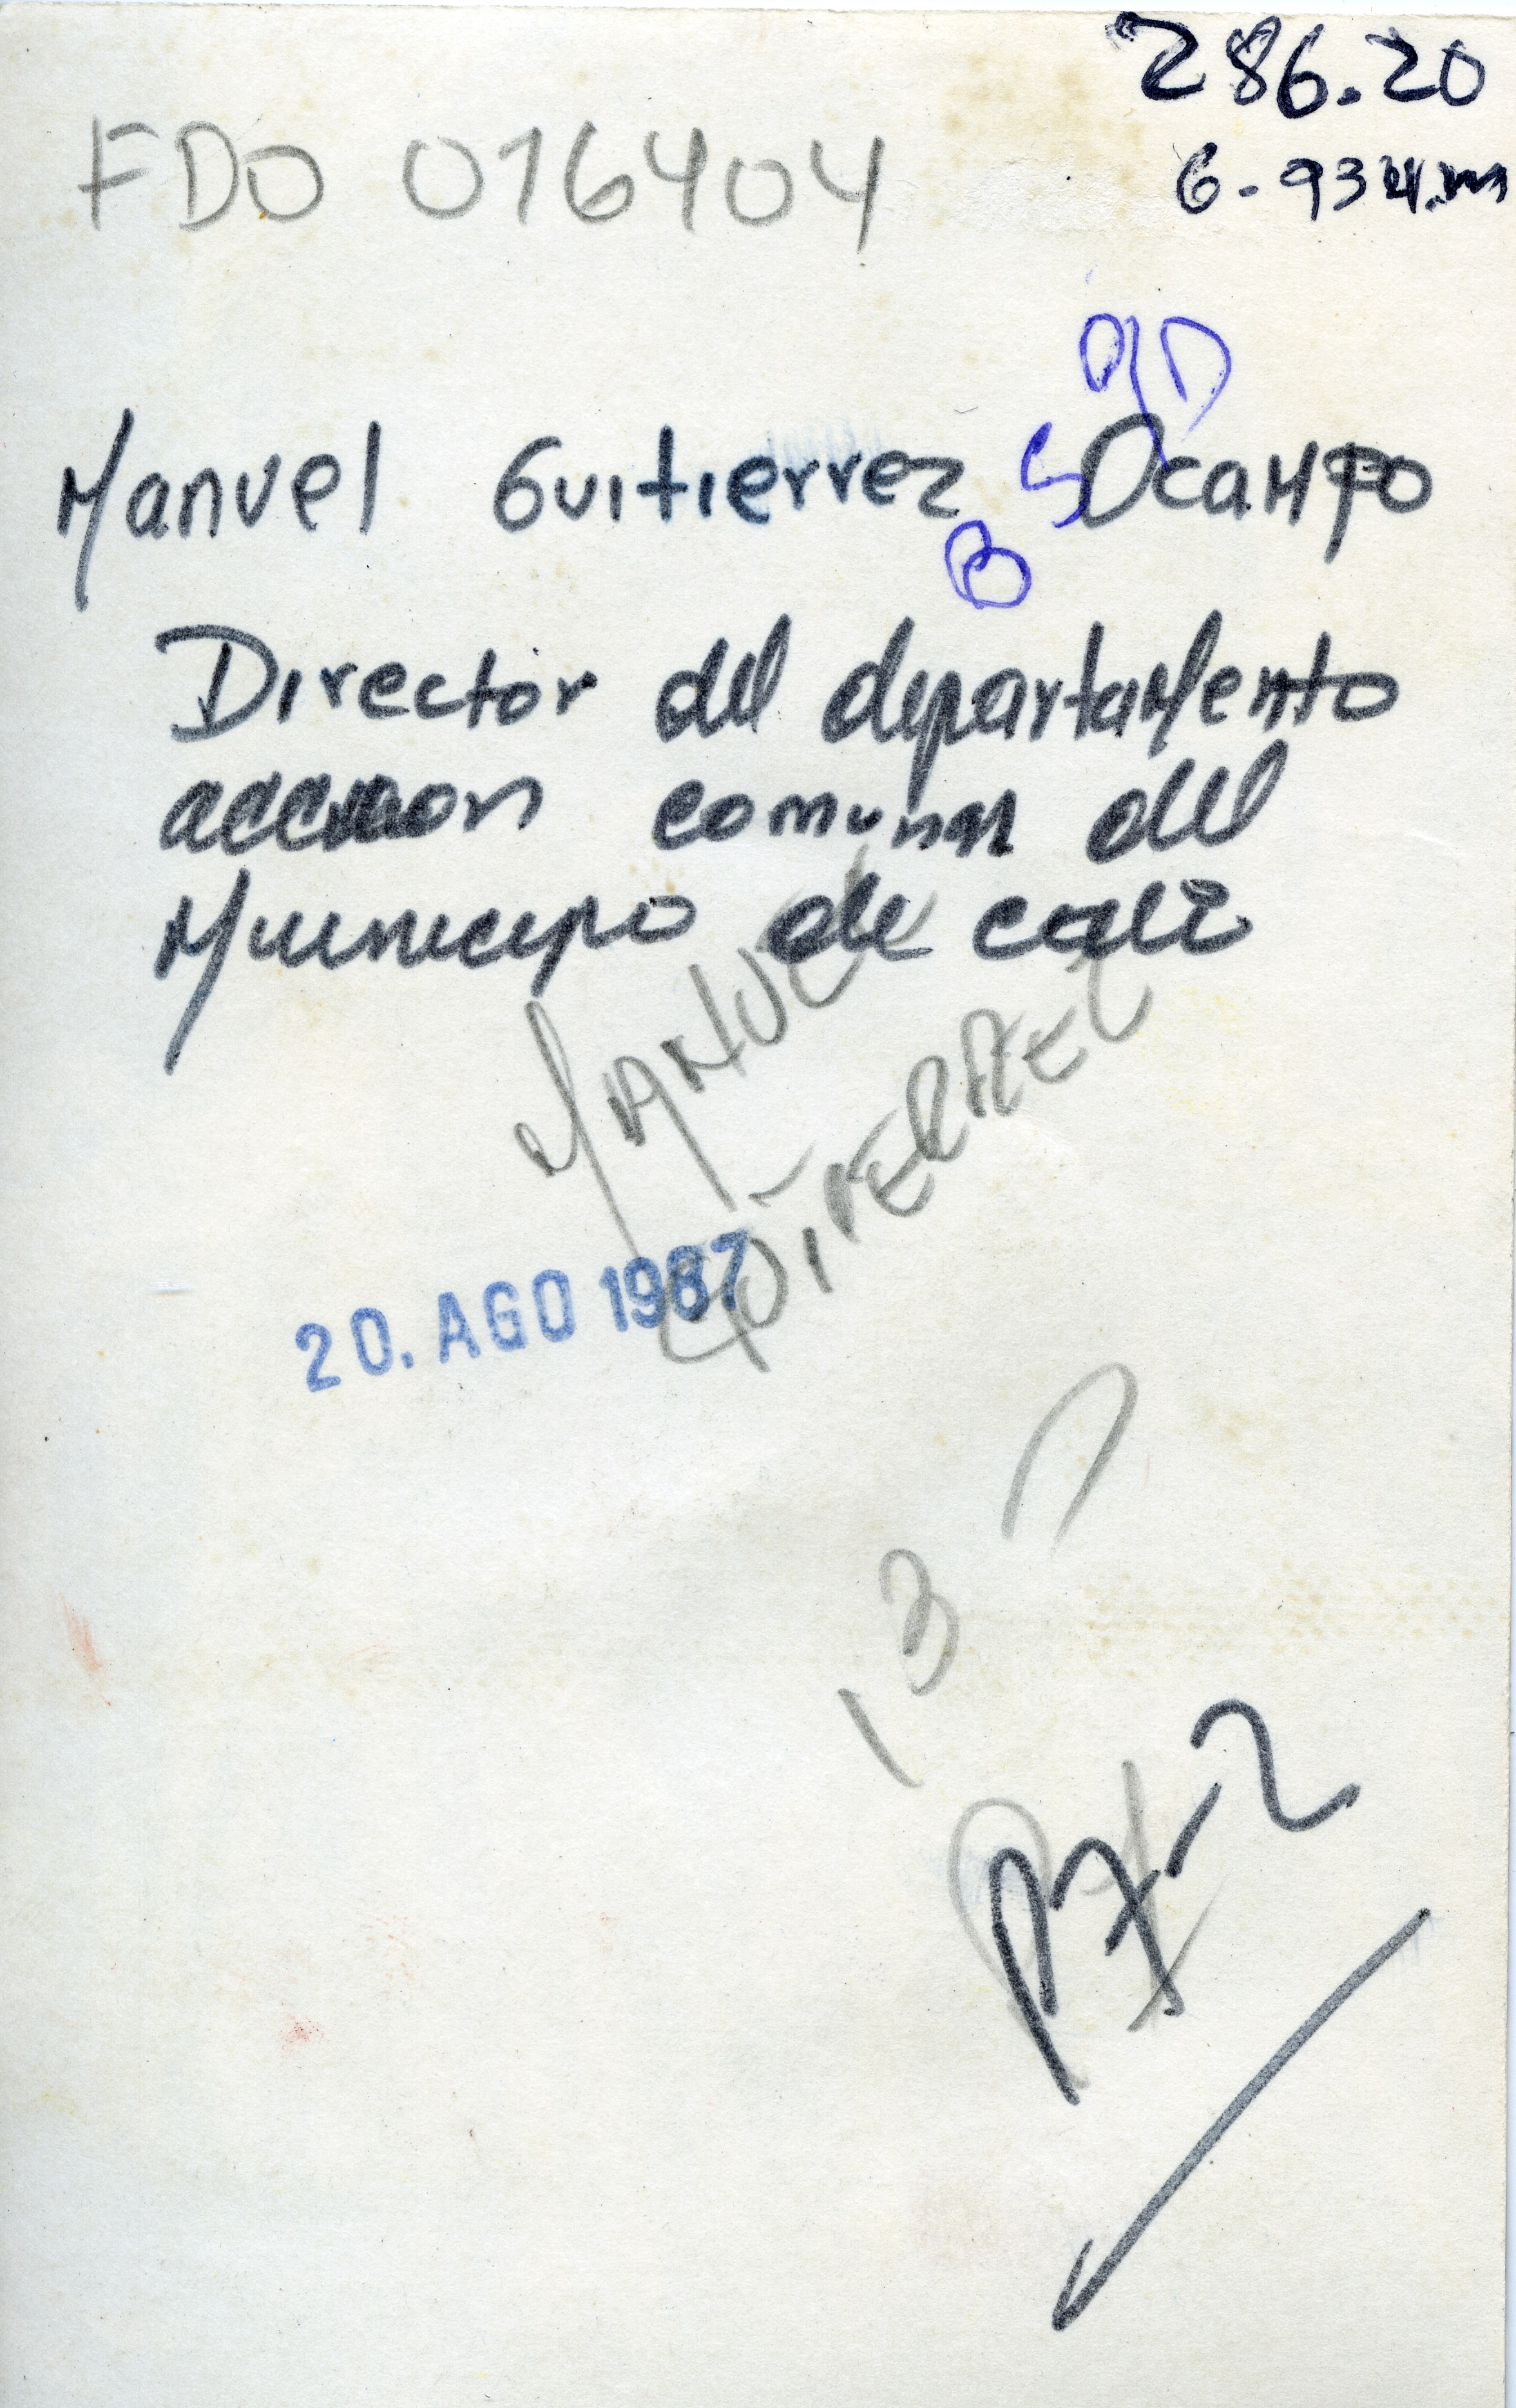 286.20
FDO 016404
Manuel Guitierrez Ocampo
Director del departamento
accion comunal del
Municipio de cali
MANUEL
GUTIERREZ
20. AGO 1987
13
P7-2